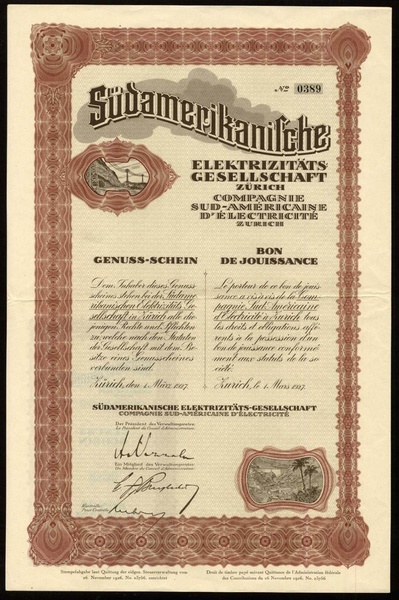 No 0389
Südamerikanische
ELEKTRIZITÄTS
GESELLSCHAFT
ZÜRICH
COMPAGNIE
SUD-AMÉRICAINE
D'ÉLECTRICITÉ
ZURICH
GENUSS-SCHEIN
Dem Inhaber dieses Genuss-
scheines stehen bei der Südame-
rikanischen Elektrizitäts-Ge-
sellschaft in Zürich alle die-
jenigen Rechte und Pflichten
zu, welche nach den Statuten
der Gesellschaft mit dem Be-
sitze eines Genussscheines
verbunden sind.
Zürich, den 1. März 1927.
BON
DE JOUISSANCE
Le porteur de ce bon de jouis-
sance a vis à vis de la Com-
pagnie Sud-Américaine
d'Electricité à Zurich, tous
les droits et obligations affé-
rents à la possession d'un
bon de jouissance conformé-
ment aux statuts de la so-
ciété.
Zurich, le 1. Mars 1927.
SÜDAMERIKANISCHE ELEKTRIZITÄTS-GESELLSCHAFT
COMPAGNIE SUD-AMÉRICAINE D'ÉLECTRICITÉ
Der Präsident des Verwaltungsrates:
Le Président du Conseil d'Administration:
Ein Mitglied des Verwaltungsrates:
Un Membre du Conseil d'Administration:
Kontrolle:
Pour Contrôle:
Stempelabgabe laut Quittung der eidgen. Steuerverwaltung vom
26. November 1926, No. 23568, entrichtet
Droit de timbre payé suivant Quittance de l'Administration fédérale
des Contributions du 26 novembre 1926, No. 23568.